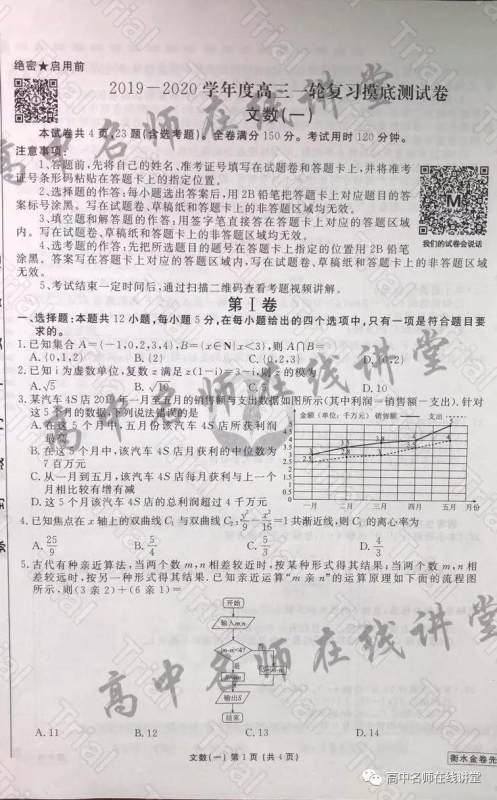 绝密★启用前
2019-2020学年度高三一轮复习摸底测试卷
文数(一)
本试卷共4页,23题(含选考题)。全卷满分150分。考试用时120分钟。
注意事项:
1.答题前,先将自己的姓名、准考证号填写在试卷和答题卡上,并将准考
证号条形码粘贴在答题卡上的指定位置。
2.选择题的作答:每小题选出答案后,用2B铅笔把答题卡上对应题目的答
案标号涂黑。写在试题卷、草稿纸和答题卡上的非答题区域均无效。
3.填空题和解答题的作答:用签字笔直接答在答题卡上对应的答题区域
内。写在试题卷、草稿纸和答题卡上的非答题区域均无效。
4.选考题的作答:先把所选题目的题号在答题卡上指定的位置用2B铅笔
涂黑。答案写在答题卡上对应的答题区域内,写在试题卷、草稿纸和答题卡上的非答题区域
均无效。
5.考试结束一定时间后,通过扫描二维码查看考题视频讲解。
我们的试卷会说话
第Ⅰ卷
一、选择题:本题共12小题,每小题5分,在每小题给出的四个选项中,只有一项是符合题目要
求的。
1.已知集合A={-1,0,2,3,4},B={x∈N|x<3},则A∩B=
A.{0,1,2} B.{2} C.{0,2,3} D.{0,2}
2.已知i为虚数单位,复数z满足z(1-i)=3-i,则z的模为
A.√5 B.√10 C.5 D.10
3.某汽车4S店2019年一月至五月的销售额与支出数据如图所示(其中利润=销售额-支出).针对
这5个月的数据,下列说法错误的是
A.在这5个月中,五月份该汽车4S店所获利润
最高
B.在这5个月中,该汽车4S店月获利的中位数为
7百万元
C.从一月到五月,该汽车4S店每月获利与上一个
月相比较有增有减
D.这5个月该汽车4S店的总利润超过4千万元
金额(单位:千万元) 销售额 支出
一月 二月 三月 四月 五月 月份
4.已知焦点在x轴上的双曲线C₁与双曲线C₂:y²/9-x²/16=1共渐近线,则C₁的离心率为
A.25/9 B.5/4 C.5/3 D.4/3
5.古代有种亲近算法,当两个数m,n相差较近时,按某种形式得其结果;当两个数m,n相
差较远时,按另一种形式得其结果.已知亲近运算“m亲n”的运算原理如下面的流程图
所示,则(3亲2)+(6亲1)=
开始
输入m,n
是
输出S
结束
A.11 B.12 C.13 D.14
文数(一) 第1页(共4页)
衡水金卷先
高中名师在线讲堂